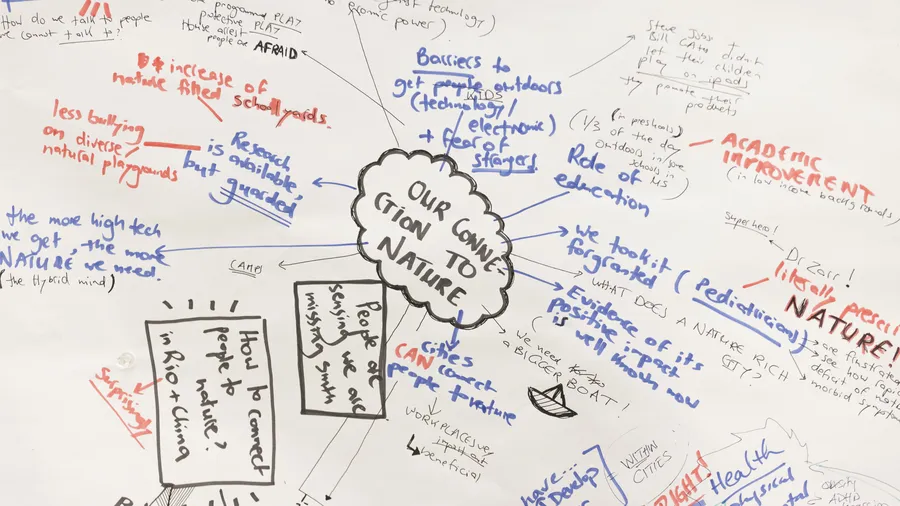 How do we talk to people
we cannot talk to?
programmed PLAY
protective PLAY
House arrest
people are AFRAID
against technology)
economic power)
Barriers to
get people outdoors
KIDS
(technology/
electronic)
+ fear of
strangers
Steve Jobs +
Bill Gates didn't
let their children
play on ipads
they promote their
products
increase of
nature filled schoolyards.
less bullying
on diverse
natural playgrounds
Research
is available,
but guarded
(in preschools)
(1/3 of the day
outdoors in some
schools in
US)
Role of
education
ACADEMIC
IMPROVEMENT
(in low income backgrounds)
OUR CONNE-
CTION TO
NATURE
the more high tech
we get, the more
NATURE we need.
(the Hybrid mind)
CAMPS
we took it
for granted
(Pediatricians)
Superhero!
Dr Zarr!
literally prescri
NATURE!
are frustrated
see how rapid
deficit of natu
morbid symptoms
WHAT DOES A NATURE RICH
CITY?
Evidence of its
positive impact
is well known now
We need
a BIGGER BOAT!
People are
sensing we are
missing smth
How to connect
people to
nature?
in Rio + China
Surprisingly
cities
CAN connect
people + nature
WORKPLACES
beneficial
have...
Develop
WITHIN
CITIES
RIGHT!
Health
physical
obesity
ADHD